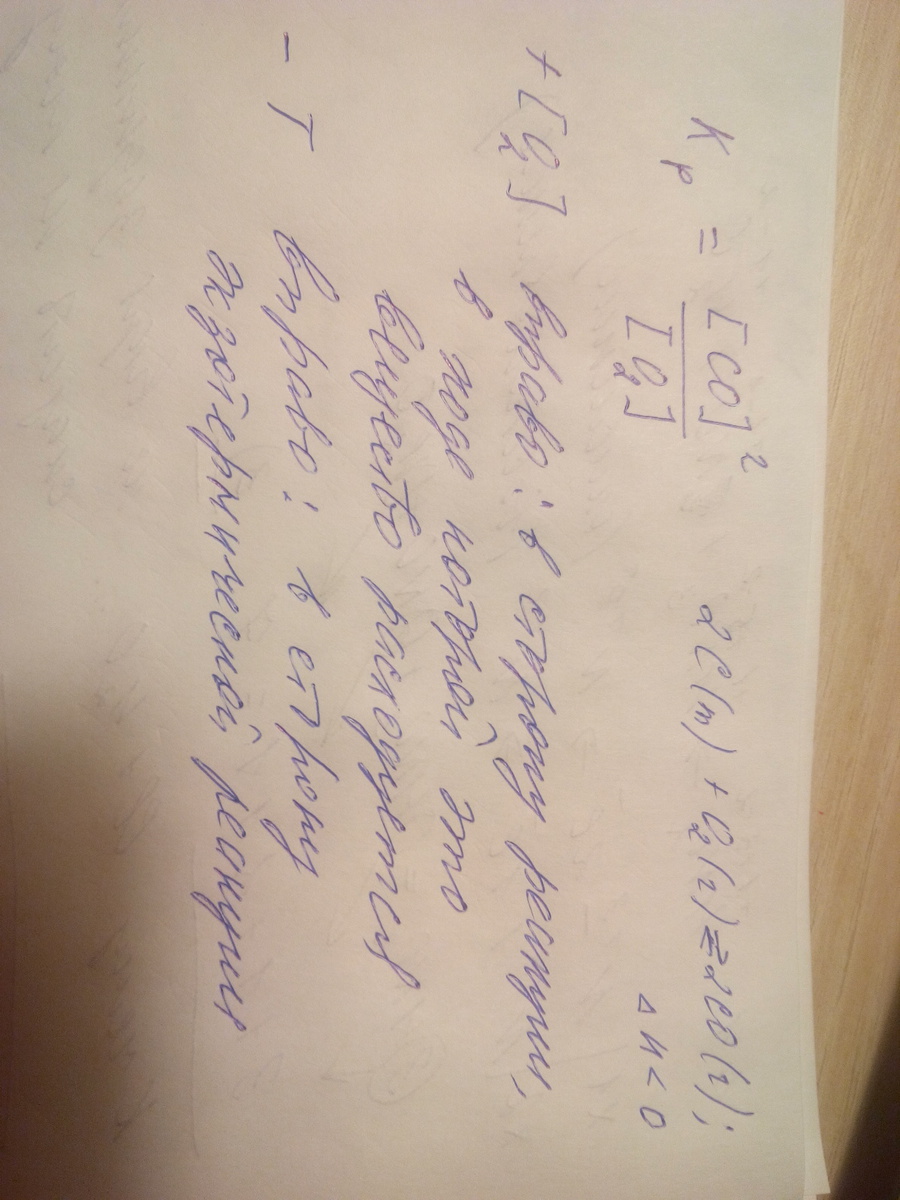 Kp = [CO]² / [O₂]   2C(т) + O₂(г) ⇄ 2CO(г);
ΔH < 0
+ [O₂] вправо: в сторону реакции,
в ходе которой это
вещество расходуется
- T вправо: в сторону
экзотермической реакции